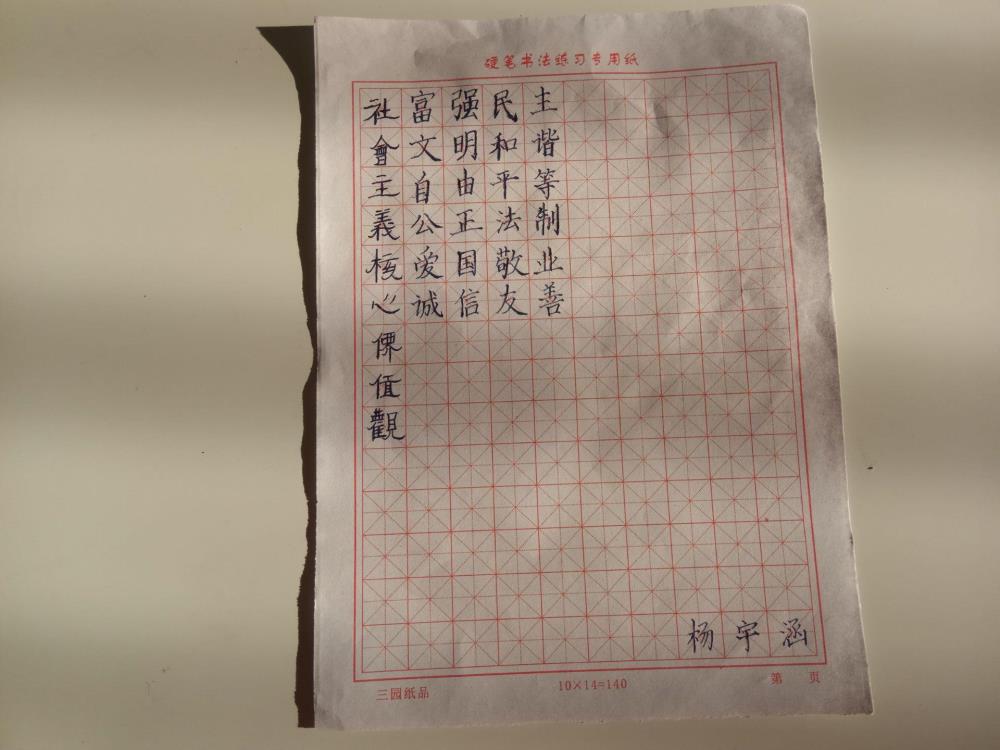 硬笔书法练习专用纸
社會主義核心價值觀
富强民主
文明和谐
自由平等
公正法制
爱国敬业
诚信友善
杨宇涵
三园纸品
10×14=140
第 页